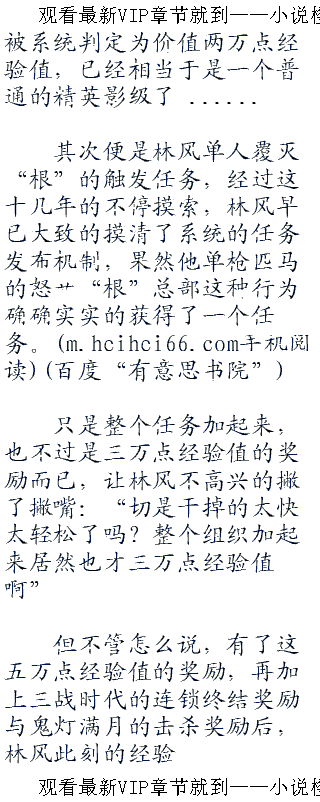 观看最新VIP章节就到——小说检
被系统判定为价值两万点经
验值，已经相当于是一个普
通的精英影级了 ......
其次便是林风单人覆灭
“根”的触发任务，经过这
十几年的不停摸索，林风早
已大致的摸清了系统的任务
发布机制，果然他单枪匹马
的怒艹“根”总部这种行为
确确实实的获得了一个任
务。(m.hcihci66.com手机阅
读)(百度“有意思书院”)
只是整个任务加起来，
也不过是三万点经验值的奖
励而已，让林风不高兴的撇
了撇嘴：“切是干掉的太快
太轻松了吗？整个组织加起
来居然也才三万点经验值
啊”
但不管怎么说，有了这
五万点经验值的奖励，再加
上三战时代的连锁终结奖励
与鬼灯满月的击杀奖励后，
林风此刻的经验
观看最新VIP章节就到——小说检